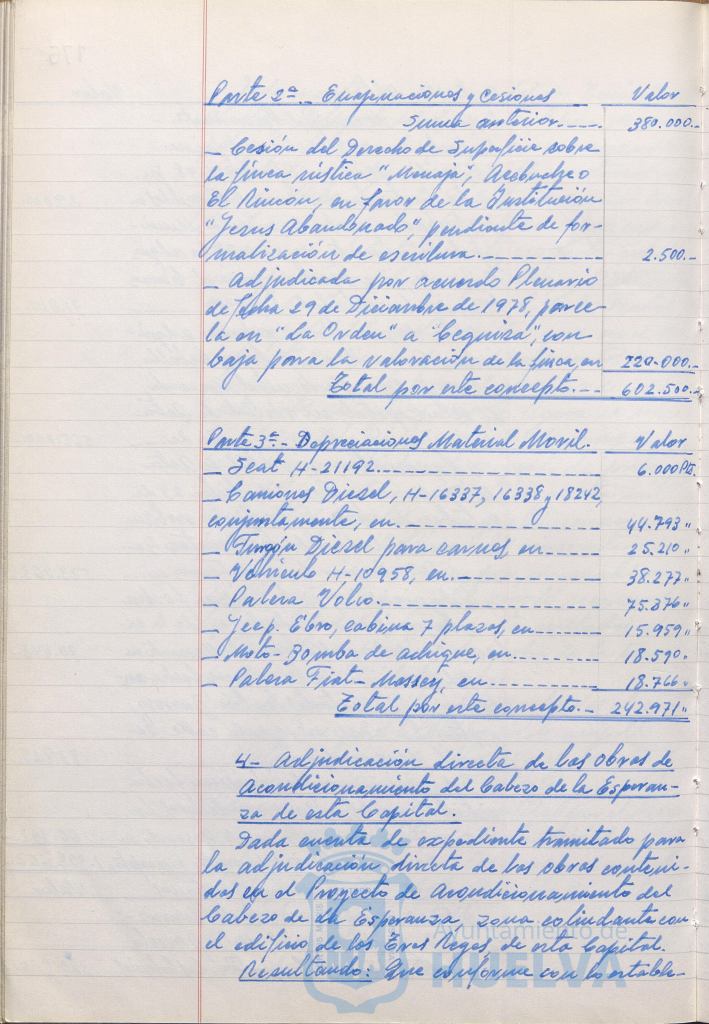 Parte 2ª.- Enajenaciones y Cesiones Valor
Suma anterior.---- 380.000.-
- Cesión del Derecho de Superficie sobre
la finca rústica "Monaja", Acebuche o
El Rincón, en favor de la Institución
"Jesus Abandonado", pendiente de for-
malización de escritura.---------- 2.500.-
- Adjudicada por acuerdo Plenario
de fecha 29 de Diciembre de 1978, parce-
la en "La Orden" a "Cequiza", con
baja para la valoración de la finca, en 220.000.-
Total por este concepto.-- 602.500.-
Parte 3ª.- Depreciaciones Material Movil. Valor
- Seat H-21192.---------- 6.000 Pts.
- Camiones Diesel, H-16337, 16338 y 18242,
conjuntamente, en.---------- 44.793 "
- Furgón Diesel para carnes, en---- 25.210 "
- Vehículo H-10958, en.---------- 38.277 "
- Palera Volvo.---------- 75.376 "
- Jeep. Ebro, cabina 7 plazas, en---- 15.959 "
- Moto-Bomba de achique, en.---- 18.590 "
- Palera Fiat-Massey, en.---------- 18.766 "
Total por este concepto.- 242.971 "
4- Adjudicación directa de las obras de
Acondicionamiento del Cabezo de la Esperan-
za de esta Capital.
Dada cuenta de expediente tramitado para
la adjudicación directa de las obras conteni-
das en el Proyecto de Acondicionamiento del
Cabezo de la Esperanza, zona colindante con
el edificio de los Eras Regos, de esta Capital.
Resultando: Que conforme con lo estable-
Ayuntamiento de
HUELVA